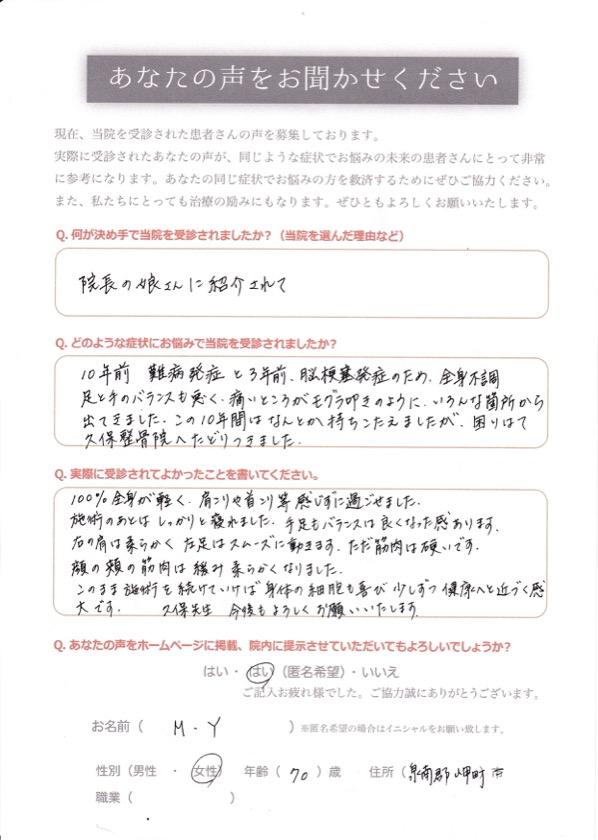 あなたの声をお聞かせください
現在、当院を受診された患者さんの声を募集しております。
実際に受診されたあなたの声が、同じような症状でお悩みの未来の患者さんにとって非常
に参考になります。あなたの同じ症状でお悩みの方を救済するためにぜひご協力ください。
また、私たちにとっても治療の励みにもなります。ぜひともよろしくお願いいたします。
Q. 何が決め手で当院を受診されましたか？（当院を選んだ理由など）
院長の娘さんに紹介されて
Q. どのような症状にお悩みで当院を受診されましたか？
10年前 難病発症と3年前、脳梗塞発症のため、全身不調
足と手のバランスも悪く、痛いところがモグラ叩きのように、いろんな箇所から
出てきました。この10年間はなんとか持ちこたえましたが、困りはて
久保整骨院へたどりつきました。
Q. 実際に受診されてよかったことを書いてください。
100%全身が軽く、肩こりや首こり等感じずに過ごせました。
施術のあとはしっかりと寝れました。手足もバランスは良くなった感あります。
右の肩は柔らかく 左足はスムーズに動きます。ただ筋肉は硬いです。
顔の頬の筋肉は緩み柔らかくなりました。
このまま施術を続けていけば身体の細胞も喜び少しずつ健康へと近づく感
大です。 久保先生 今後もよろしくお願いいたします。
Q. あなたの声をホームページに掲載、院内に提示させていただいてもよろしいでしょうか？
はい・はい（匿名希望）・いいえ
ご記入お疲れ様でした。ご協力誠にありがとうございます。
お名前（ M・Y ）※匿名希望の場合はイニシャルをお願い致します。
性別（男性 ・ 女性） 年齢（ 70 ）歳 住所（泉南郡岬町
職業（ ）